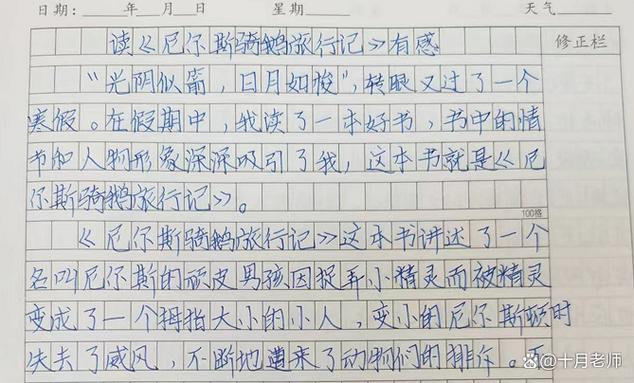 日期：____年__月__日 星期____ 天气____
读《尼尔斯骑鹅旅行记》有感 修正栏
“光阴似箭，日月如梭”，转眼又过了一个
寒假。在假期中，我读了一本好书，书中的情
节和人物形象深深吸引了我，这本书就是《尼
尔斯骑鹅旅行记》。
100格
《尼尔斯骑鹅旅行记》这本书讲述了一个
名叫尼尔斯的顽皮男孩因捉弄小精灵而被精灵
变成了一个拇指大小的小人，变小的尼尔斯顿时
失去了威风，不断地遭来了动物们的排斥。而
@十月老师